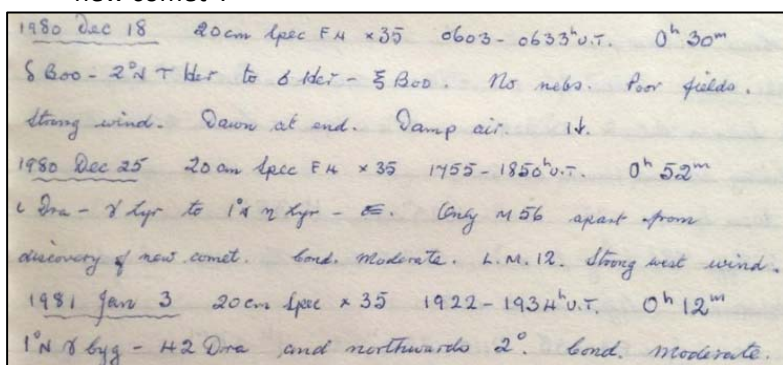 new comet".
1980 Dec 18 20cm Spec FH ×35 0603-0633ʰU.T. 0ʰ 30ᵐ
δ Boo - 2°N τ Her to γ Her - ξ Boo. No nebs. Poor fields.
Strong wind. Dawn at end. Damp air. 1↓.
1980 Dec 25 20cm Spec FH ×35 1755-1850ʰU.T. 0ʰ 52ᵐ
ι Dra - γ Lyr to 1°N η Lyr - Only M56 apart from
discovery of new comet. Cond. moderate. L.M. 12. Strong west wind.
1981 Jan 3 20cm Spec ×35 1922-1934ʰU.T. 0ʰ 12ᵐ
1°N γ Cyg - 42 Dra and northwards 2°. Cond. moderate.